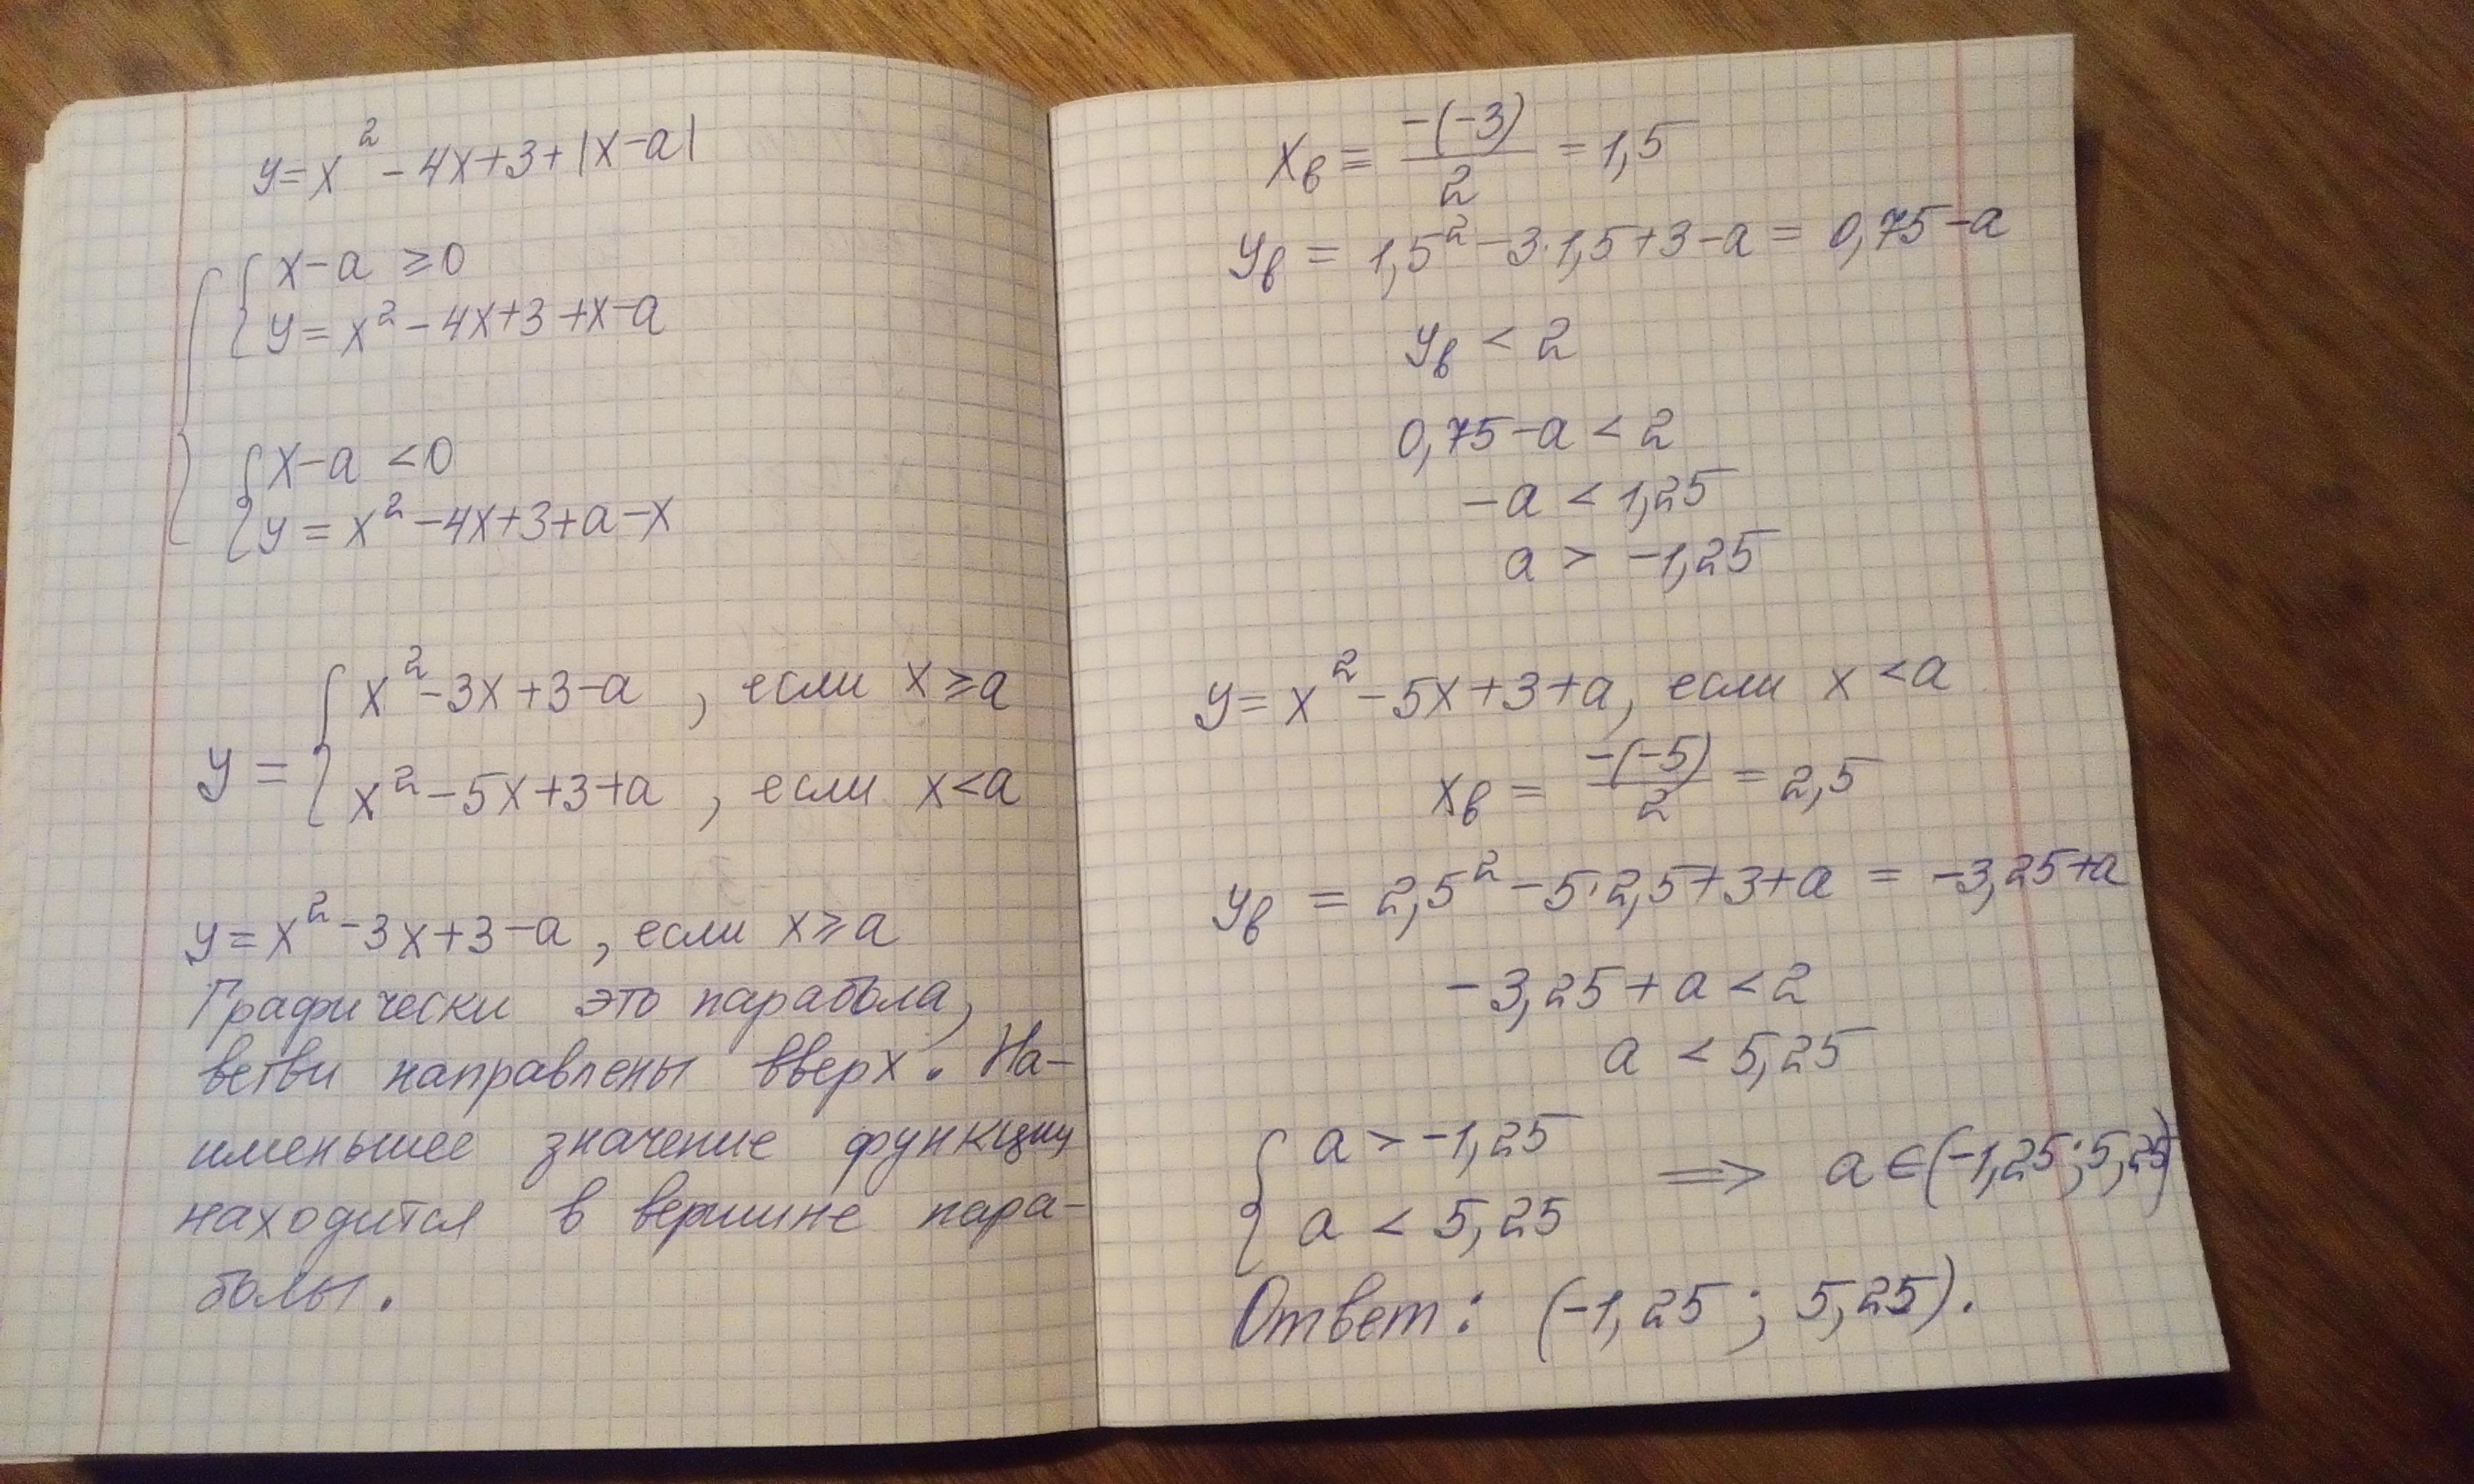 y=x²-4x+3+|x-a|
x-a ≥0
y=x²-4x+3+x-a
x-a <0
y=x²-4x+3+a-x
x²-3x+3-a , если x≥a
y=
x²-5x+3+a , если x<a
y=x²-3x+3-a, если x≥a
Графически это парабола,
ветви направлены вверх. На-
именьшее значение функции
находится в вершине пара-
болы.
xв = -(-3)/2 = 1,5
yв = 1,5²-3·1,5+3-a = 0,75-a
yв < 2
0,75-a < 2
-a < 1,25
a > -1,25
y=x²-5x+3+a, если x<a
xв = -(-5)/2 = 2,5
yв = 2,5²-5·2,5+3+a = -3,25+a
-3,25+a<2
a < 5,25
a > -1,25
⟹ a∈(-1,25;5,25)
a < 5,25
Ответ: (-1,25; 5,25).